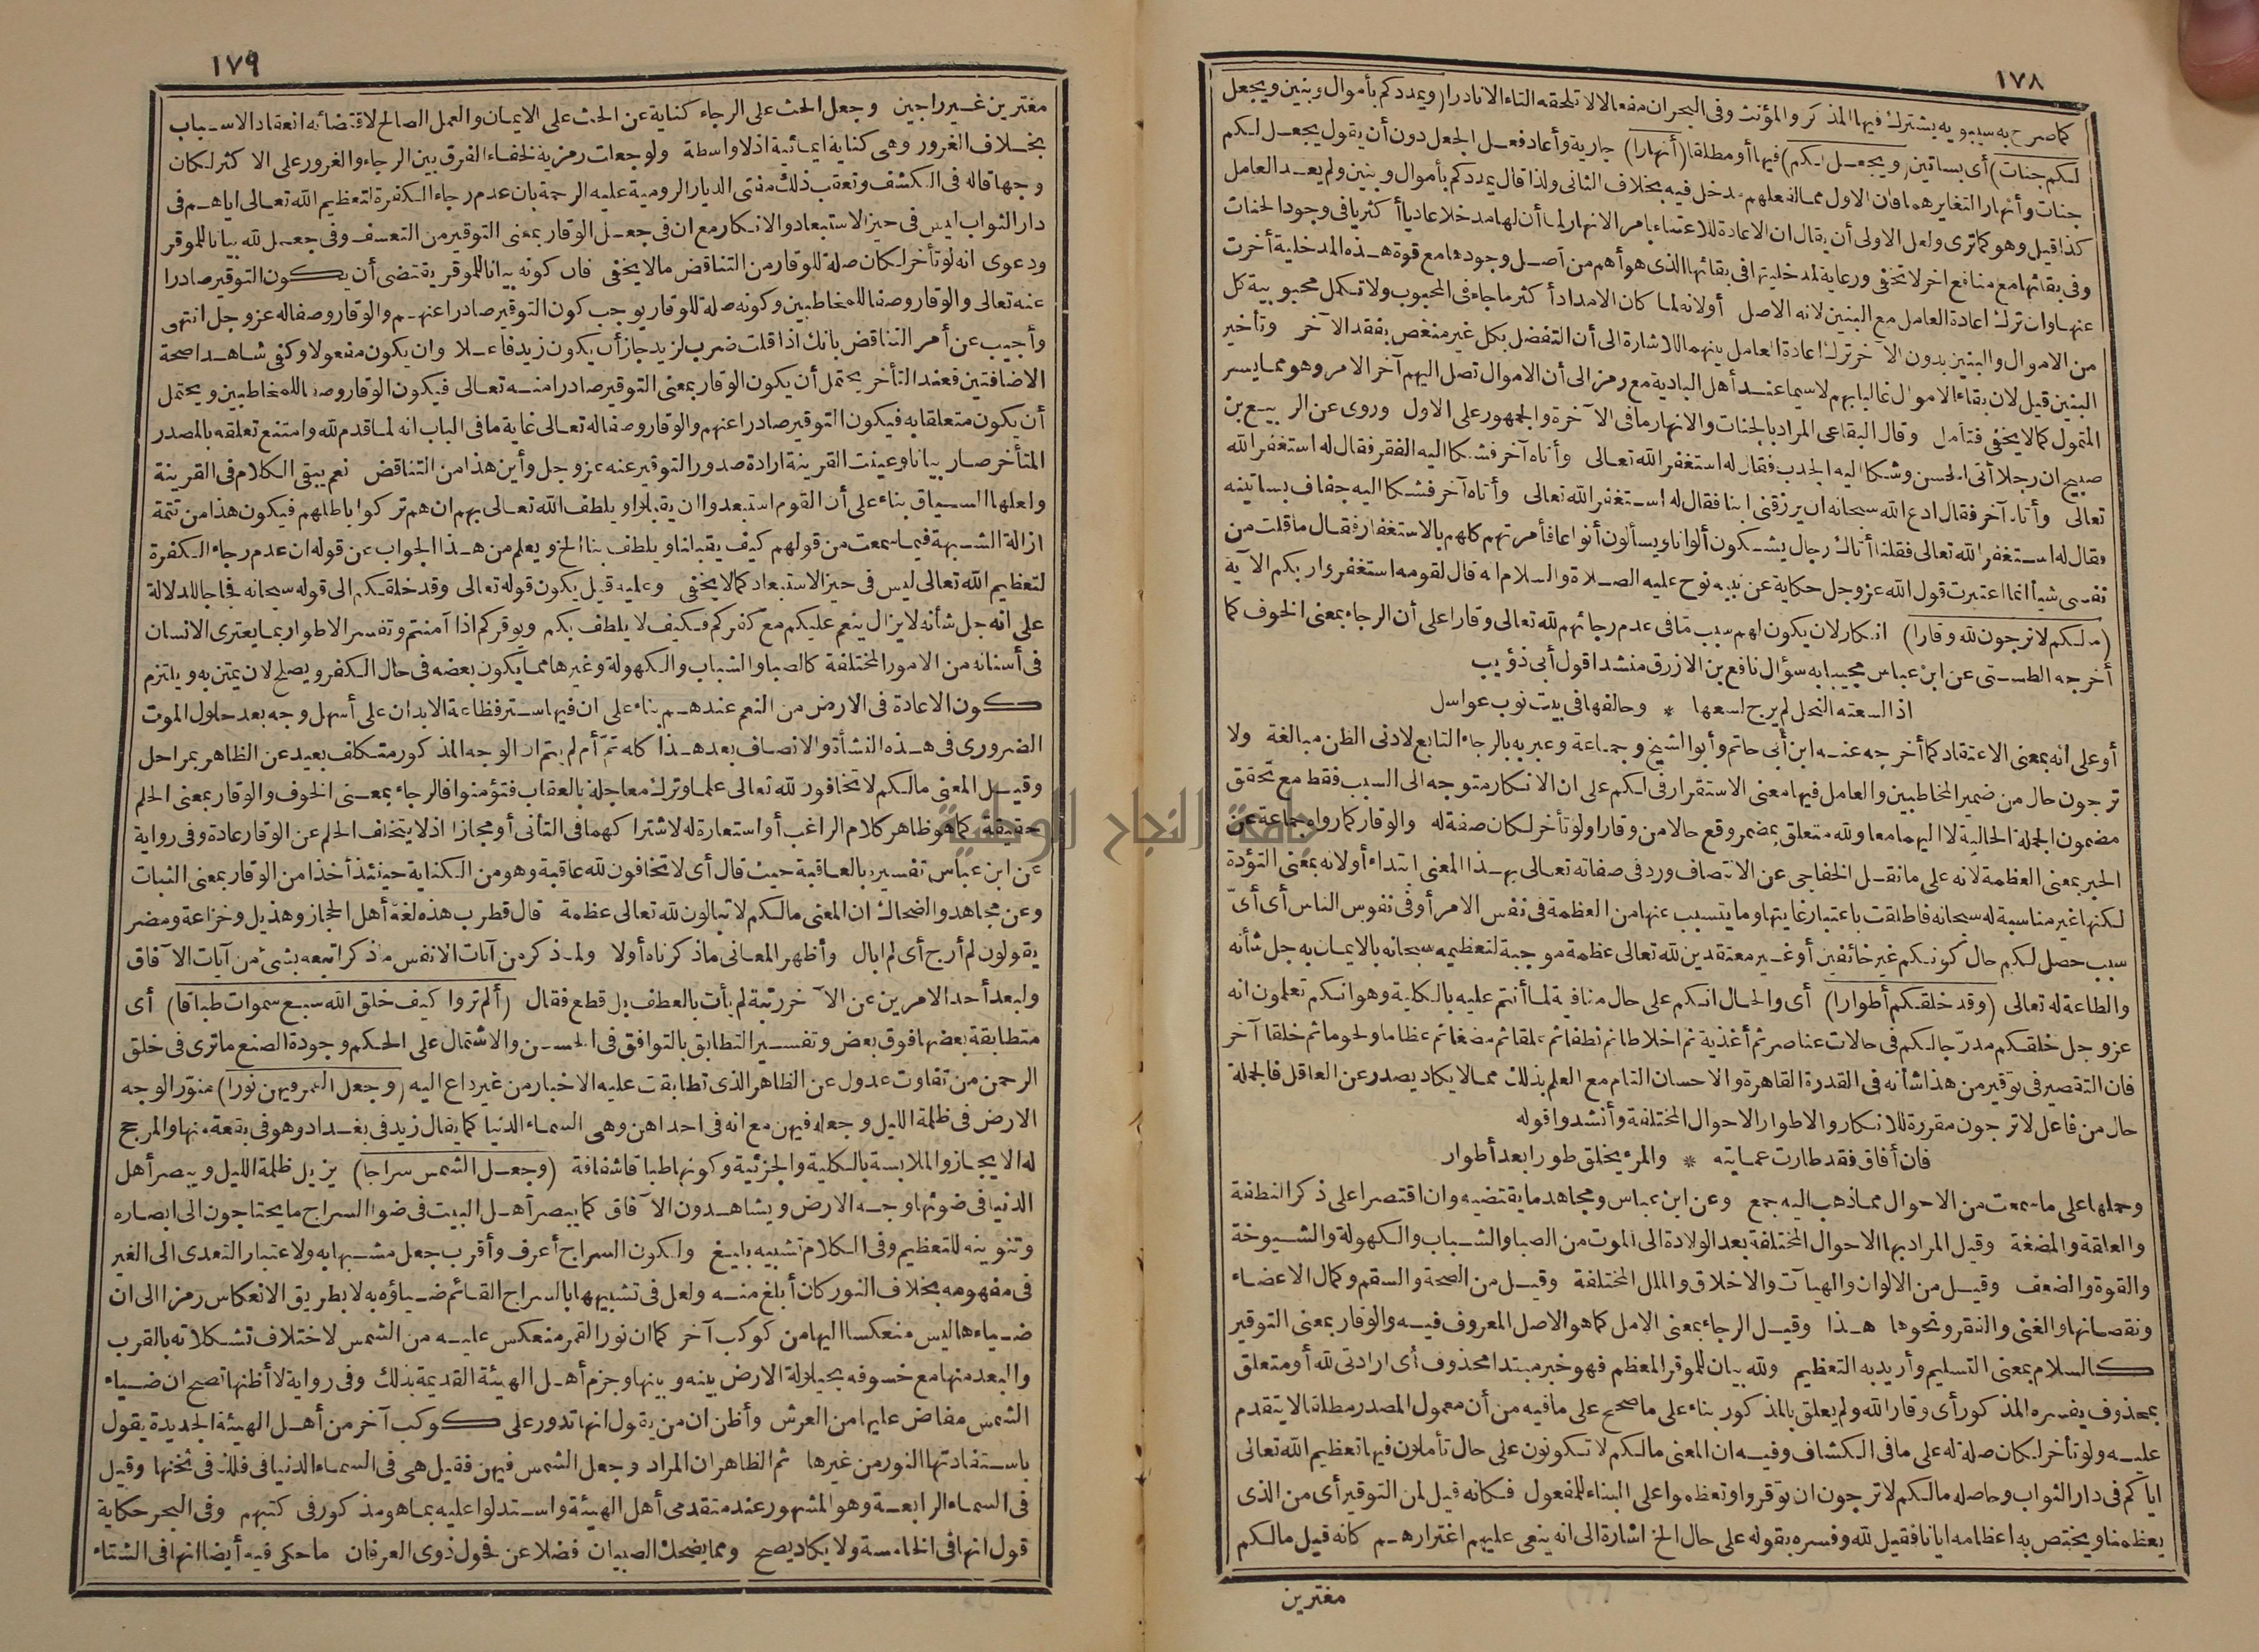 ١٧٨
كما صرح به سيبويه يشترك فيها المذكر والمؤنث وفى البحر ان مفعالا لا تلحقه التاء الا نادرا (ويمددكم بأموال وبنين ويجعل
لكم جنات) أى بساتين (ويجعل لكم) فيها أو مطلقا (أنهارا) جارية وأعاد فعل الجعل دون أن يقول يجعل لكم
جنات وأنهارا لتغايرهما فان الاول مما لفعلهم مدخل فيه بخلاف الثانى ولذا قال يمددكم بأموال وبنين ولم يعد العامل
كذا قيل وهو كما ترى ولعل الاولى أن يقال ان الاعادة للاعتناء بامر الانهار لما أن لها مدخلا عاديا أكثريا فى وجود الجنات
وفى بقائها مع منافع اخر لا تخفى ورعاية لمدخليتها فى بقائها الذى هو أهم من أصل وجودها مع قوة هذه المدخلية أخرت
عنها وان ترك اعادة العامل مع البنين لانه الاصل أو لانه لما كان الامداد أكثر ما جاء فى المحبوب ولا تكمل محبوبية كل
من الاموال والبنين بدون الآخر ترك اعادة العامل بينهما للاشارة الى أن التفضل بكل غير منغص بفقد الآخر وتأخير
البنين قيل لان بقاء الاموال غالبا بهم لا سيما عند أهل البادية مع رمز الى أن الاموال تصل اليهم آخر الامر وهو مما يسر
المتمول كما لا يخفى فتأمل وقال البقاعى المراد بالجنات والانهار ما فى الآخرة والجمهور على الاول وروى عن الربيع بن
صبيح ان رجلا أتى الحسن وشكا اليه الجدب فقال له استغفر الله تعالى وأتاه آخر فشكا اليه الفقر فقال له استغفر الله
تعالى وأتاه آخر فقال ادع الله سبحانه ان يرزقنى ابنا فقال له استغفر الله تعالى وأتاه آخر فشكا اليه جفاف بساتينه
فقال له استغفر الله تعالى فقلنا أتاك رجال يشكون ألوانا ويسألون أنواعا فأمرتهم كلهم بالاستغفار فقال ما قلت من
نفسى شيأ انما اعتبرت قول الله عز وجل حكاية عن نبيه نوح عليه الصلاة والسلام انه قال لقومه استغفروا ربكم الآية
(ما لكم لا ترجون لله وقارا) انكار لان يكون لهم سبب ما فى عدم رجائهم لله تعالى وقارا على أن الرجاء بمعنى الخوف كما
أخرجه الطستى عن ابن عباس مجيبا به سؤال نافع بن الازرق منشدا قول أبى ذؤيب
اذا لسعته النحل لم يرج لسعها * وحالفها فى بيت نوب عواسل
أو على انه بمعنى الاعتقاد كما أخرجه عنه ابن أبى حاتم وأبو الشيخ وجماعة وعبر به بالرجاء التابع لادنى الظن مبالغة ولا
ترجون حال من ضمير المخاطبين والعامل فيها معنى الاستقرار فى لكم على ان الانكار متوجه الى السبب فقط مع تحقق
مضمون الجملة الحالية لا اليهما معا ولله متعلق بمضمر وقع حالا من وقارا ولو تأخر لكان صفة له والوقار كما رواه جماعة عن
الحبر بمعنى العظمة لانه على ما نقل الخفاجى عن الانتصاف ورد فى صفاته تعالى بهذا المعنى ابتداء أو لانه بمعنى التؤدة
لكنها غير مناسبة له سبحانه فاطلقت باعتبار غايتها وما يتسبب عنها من العظمة فى نفس الامر أو فى نفوس الناس أى أىّ
سبب حصل لكم حال كونكم غير خائفين أو غير معتقدين لله تعالى عظمة موجبة لتعظيمه سبحانه بالايمان به جل شأنه
والطاعة له تعالى (وقد خلقكم أطوارا) أى والحال انكم على حال منافية لما أنتم عليه بالكلية وهو انكم تعلمون انه
عز وجل خلقكم مدرّجا لكم فى حالات عناصر ثم أغذية ثم اخلاطا ثم نطفا ثم علقا ثم مضغا ثم عظاما ولحوما ثم خلقا آخر
فان التقصير فى توقير من هذا شأنه فى القدرة القاهرة والاحسان التام مع العلم بذلك مما لا يكاد يصدر عن العاقل فالجملة
حال من فاعل لا ترجون مقررة للانكار والاطوار الاحوال المختلفة وأنشدوا قوله
فان أفاق فقد طارت عمايته * والمرء يخلق طورا بعد أطوار
وحملها على ما سمعت من الاحوال مما ذهب اليه جمع وعن ابن عباس ومجاهد ما يقتضيه وان اقتصرا على ذكر النطفة
والعلقة والمضغة وقيل المراد بها الاحوال المختلفة بعد الولادة الى الموت من الصبا والشباب والكهولة والشيوخة
والقوة والضعف وقيل من الالوان والهيآت والاخلاق والملل المختلفة وقيل من الصحة والسقم وكمال الاعضاء
ونقصانها والغنى والفقر ونحوها هذا وقيل الرجاء بمعنى الامل كما هو الاصل المعروف فيه والوقار بمعنى التوقير
كالسلام بمعنى التسليم وأريد به التعظيم ولله بيان للموقر المعظم فهو خبر مبتدا محذوف أى ارادتى لله أو متعلق
بمحذوف يفسره المذكور أى وقارا لله ولم يعلق بالمذكور بناء على ما صحح على ما فيه من أن معمول المصدر مطلقا لا يتقدم
عليه ولو تأخر لكان صلة له على ما فى الكشاف وفيه ان المعنى ما لكم لا تكونون على حال تأملون فيها تعظيم الله تعالى
اياكم فى دار الثواب وحاصله ما لكم لا ترجون ان توقروا وتعظموا على البناء للمفعول فكانه قيل لمن التوقير أى من الذى
يعظمنا ويختص به اعظامه ايانا فقيل لله وفسره بقوله على حال الخ اشارة الى انه ينعى عليهم اغترارهم كانه قيل ما لكم
مغترين
١٧٩
مغترين غير راجين وجعل الحث على الرجاء كناية عن الحث على الايمان والعمل الصالح لاقتضائه انعقاد الاسباب
بخلاف الغرور وهى كناية ايمائية اذ لا واسطة ولو جعلت رمزية لخفاء الفرق بين الرجاء والغرور على الاكثر لكان
وجها قاله فى الكشف وتعقب ذلك مفتى الديار الرومية عليه الرحمة بان عدم رجاء الكفرة لتعظيم الله تعالى اياهم فى
دار الثواب ليس فى حيز الاستبعاد والانكار مع ان فى جعل الوقار بمعنى التوقير من التعسف وفى جعل لله بيانا للموقر
ودعوى انه لو تأخر لكان صلة للوقار من التناقض ما لا يخفى فان كونه بيانا للموقر يقتضى أن يكون التوقير صادرا
عنه تعالى والوقار وصفا للمخاطبين وكونه صلة للوقار يوجب كون التوقير صادرا عنهم والوقار وصفا له عز وجل انتهى
وأجيب عن أمر التناقض بانك اذا قلت ضرب لزيد جاز أن يكون زيد فاعلا وان يكون مفعولا وكفى شاهدا صحة
الاضافتين فعند التأخر يحتمل أن يكون الوقار بمعنى التوقير صادرا منه تعالى فيكون الوقار وصفا للمخاطبين ويحتمل
أن يكون متعلقا به فيكون التوقير صادرا عنهم والوقار وصفا له تعالى غاية ما فى الباب انه لما قدم لله وامتنع تعلقه بالمصدر
المتأخر صار بيانا وعينت القرينة ارادة صدور التوقير عنه عز وجل وأين هذا من التناقض نعم يبقى الكلام فى القرينة
ولعلها السياق بناء على أن القوم استبعدوا ان يقبلوا ويلطف الله تعالى بهم ان هم تركوا باطلهم فيكون هذا من تتمة
ازالة الشبهة فيما سمعت من قولهم كيف يقبلنا ويلطف بنا الخ ويعلم من هذا الجواب عن قوله ان عدم رجاء الكفرة
لتعظيم الله تعالى ليس فى حيز الاستبعاد كما لا يخفى وعليه قيل يكون قوله تعالى وقد خلقكم الى قوله سبحانه فجاجا للدلالة
على انه جل شأنه لا يزال ينعم عليكم مع كفركم فكيف لا يلطف بكم ويوقركم اذا آمنتم وتفسر الاطوار بما يعترى الانسان
فى أسنانه من الامور المختلفة كالصبا والشباب والكهولة وغيرها مما يكون بعضه فى حال الكفر ويصلح لان يمتن به ويلتزم
كون الاعادة فى الارض من النعم عندهم بناء على ان فيها ستر فظاعة الابدان على أسهل وجه بعد حلول الموت
الضرورى فى هذه النشأة والانصاف بعد هذا كله تمّ أم لم يتم ان الوجه المذكور متكلف بعيد عن الظاهر بمراحل
وقيل المعنى ما لكم لا تخافون لله تعالى حلما وترك معاجلة بالعقاب فتؤمنوا فالرجاء بمعنى الخوف والوقار بمعنى الحلم
حقيقة كما هو ظاهر كلام الراغب أو استعارة له لاشتراكهما فى التأنى أو مجازا اذ لا يتخلف الحلم عن الوقار عادة وفى رواية
عن ابن عباس تفسيره بالعاقبة حيث قال أى لا تخافون لله عاقبة وهو من الكناية حينئذ أخذا من الوقار بمعنى الثبات
وعن مجاهد والضحاك ان المعنى ما لكم لا تبالون لله تعالى عظمة قال قطرب هذه لغة أهل الحجاز وهذيل وخزاعة ومضر
يقولون لم أرج أى لم ابال وأظهر المعانى ما ذكرناه أولا ولما ذكر من آيات الانفس ما ذكر اتبعه بشئ من آيات الآفاق
ولبعد أحد الامرين عن الآخر رتبة لم يأت بالعطف بل قطع فقال (ألم تروا كيف خلق الله سبع سموات طباقا) أى
متطابقة بعضها فوق بعض وتفسير التطابق بالتوافق فى الحسن والاشتمال على الحكم وجودة الصنع ما ترى فى خلق
الرحمن من تفاوت عدول عن الظاهر الذى تطابقت عليه الاخبار من غير داع اليه (وجعل القمر فيهن نورا) منوّر الوجه
الارض فى ظلمة الليل وجعله فيهن مع انه فى احداهن وهى السماء الدنيا كما يقال زيد فى بغداد وهو فى بقعة منها والمرجح
له الايجاز والملابسة بالكلية والجزئية وكونها طباقا شفافة (وجعل الشمس سراجا) يزيل ظلمة الليل ويبصر أهل
الدنيا فى ضوئها وجه الارض ويشاهدون الآفاق كما يبصر أهل البيت فى ضوء السراج ما يحتاجون الى ابصاره
وتنوينه للتعظيم وفى الكلام تشبيه بليغ ولكون السراج أعرف وأقرب جعل مشبها به ولاعتبار التعدى الى الغير
فى مفهومه بخلاف النور كان أبلغ منه ولعل فى تشبيهها بالسراج القائم ضياؤه به لا بطريق الانعكاس رمزا الى ان
ضياءها ليس منعكسا اليها من كوكب آخر كما ان نور القمر منعكس عليه من الشمس لاختلاف تشكلاته بالقرب
والبعد منها مع خسوفه بحيلولة الارض بينه وبينها وجزم أهل الهيئة القديمة بذلك وفى رواية لا أظنها تصح ان ضياء
الشمس مفاض عليها من العرش وأظن ان من يقول انها تدور على كوكب آخر من أهل الهيئة الجديدة يقول
باستفادتها النور من غيرها ثم الظاهر ان المراد وجعل الشمس فيهن فقيل هى فى السماء الدنيا فى فلك فى ثخنها وقيل
فى السماء الرابعة وهو المشهور عند متقدمى أهل الهيئة واستدلوا عليه بما هو مذكور فى كتبهم وفى البحر حكاية
قول انها فى الخامسة ولا يكاد يصح ومما يضحك الصبيان فضلا عن فحول ذوى العرفان ما حكى فيه أيضا انها فى الشتاء
جامعة النجاح الوطنية